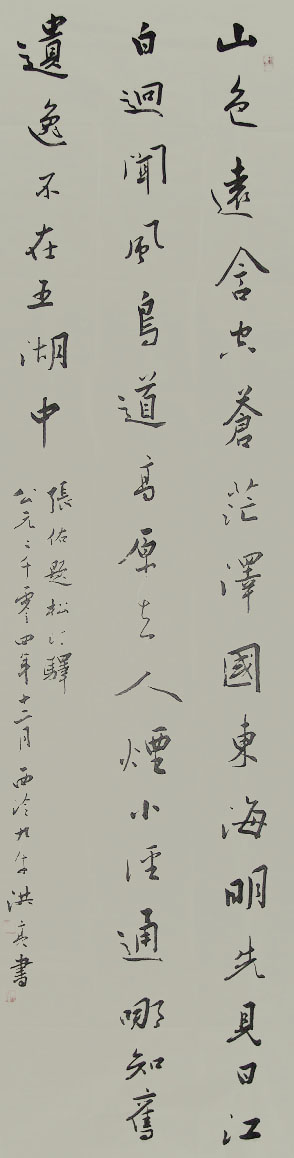 山色遠含空蒼茫澤國東海明先見日江
白逈聞風鳥道高原去人煙小徑通哪知舊
遺逸不在五湖中
張佑題松汀驛
公元二千零四年十二月西泠洪亮書